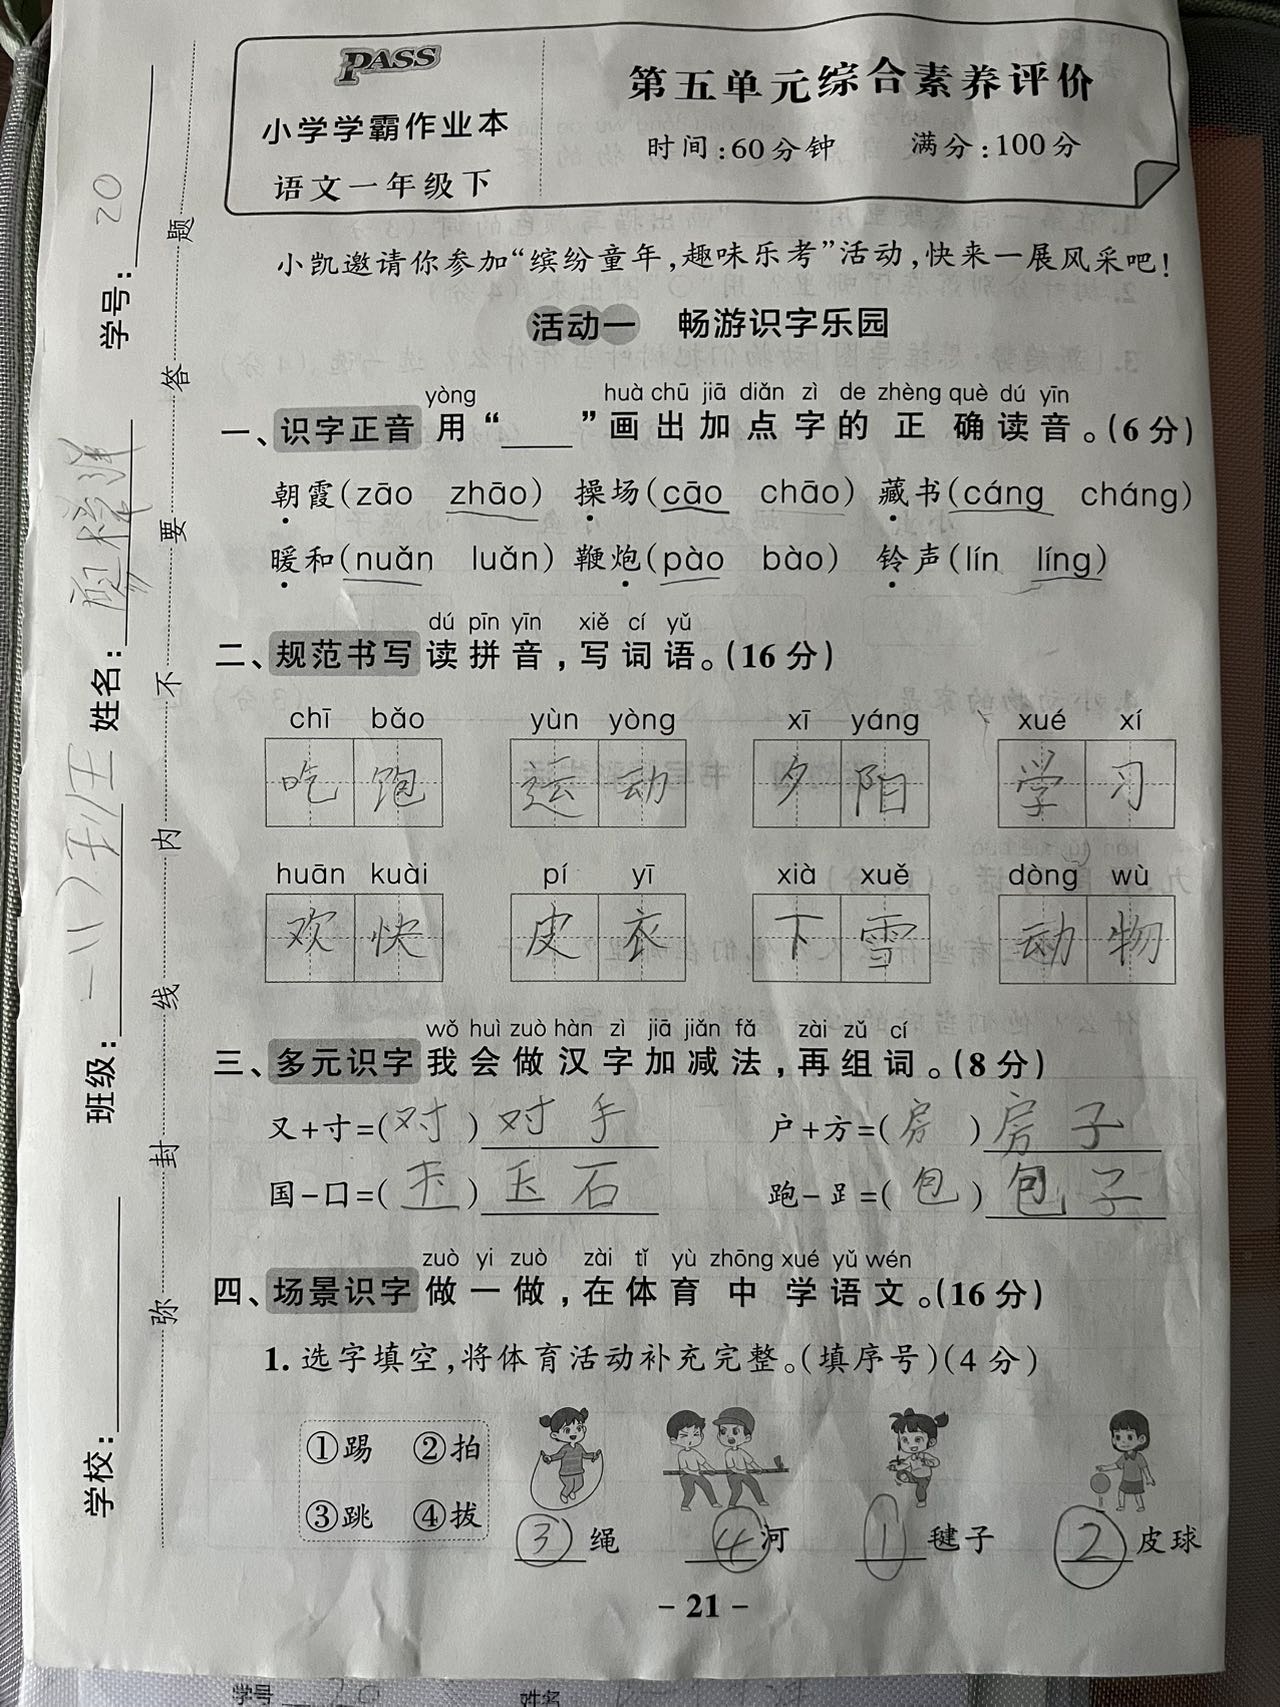 PASS
小学学霸作业本
语文一年级下
第五单元综合素养评价
时间:60分钟 满分:100分
小凯邀请你参加“缤纷童年,趣味乐考”活动,快来一展风采吧!
活动一 畅游识字乐园
yòng huà chū jiā diǎn zì de zhèng què dú yīn
一、识字正音 用“____”画出加点字的正确读音。(6分)
朝霞(zāo zhāo) 操场(cāo chāo) 藏书(cáng cháng)
暖和(nuǎn luǎn) 鞭炮(pào bào) 铃声(lín líng)
dú pīn yīn xiě cí yǔ
二、规范书写 读拼音,写词语。(16分)
chī bǎo yùn yòng xī yáng xué xí
吃饱 运动 夕阳 学习
huān kuài pí yī xià xuě dòng wù
欢快 皮衣 下雪 动物
wǒ huì zuò hàn zì jiā jiǎn fǎ zài zǔ cí
三、多元识字 我会做汉字加减法,再组词。(8分)
又+寸=(对) 对手 户+方=(房) 房子
国-口=(玉) 玉石 跑-⻊=(包) 包子
zuò yi zuò zài tǐ yù zhōng xué yǔ wén
四、场景识字 做一做,在体育中学语文。(16分)
1. 选字填空,将体育活动补充完整。(填序号)(4分)
①踢 ②拍
③跳 ④拔
③绳 ④河 ①毽子 ②皮球
- 21 -
学校:
班级: 一(1)王
姓名:
学号: 20
弥 封 线 内 不 要 答 题
学号 20 姓名